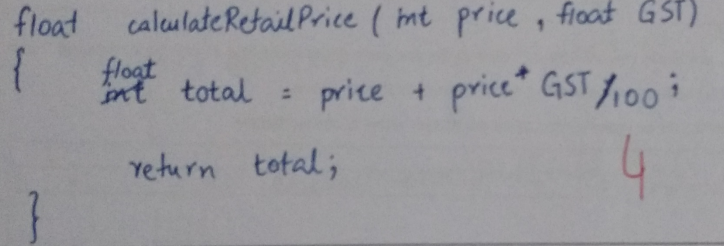 float calculateRetailPrice ( int price , float GST)
{ float
int total = price + price* GST /100 ;
return total;
4
}